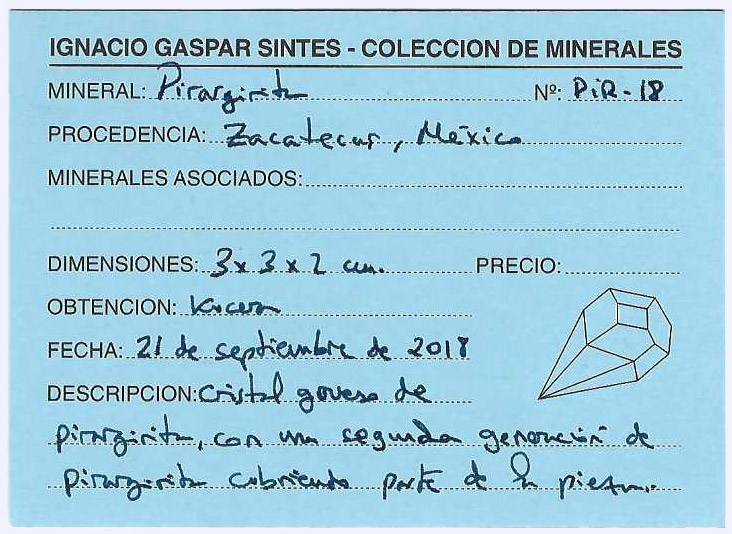 IGNACIO GASPAR SINTES - COLECCION DE MINERALES
MINERAL: Pirargirita Nº: PiR-18
PROCEDENCIA: Zacatecas, México
MINERALES ASOCIADOS:
DIMENSIONES: 3 x 3 x 2 cm. PRECIO:
OBTENCION:
FECHA: 21 de septiembre de 2018
DESCRIPCION: Cristal grueso de
pirargirita, con una segunda generación de
pirargirita cubriendo parte de la pieza.